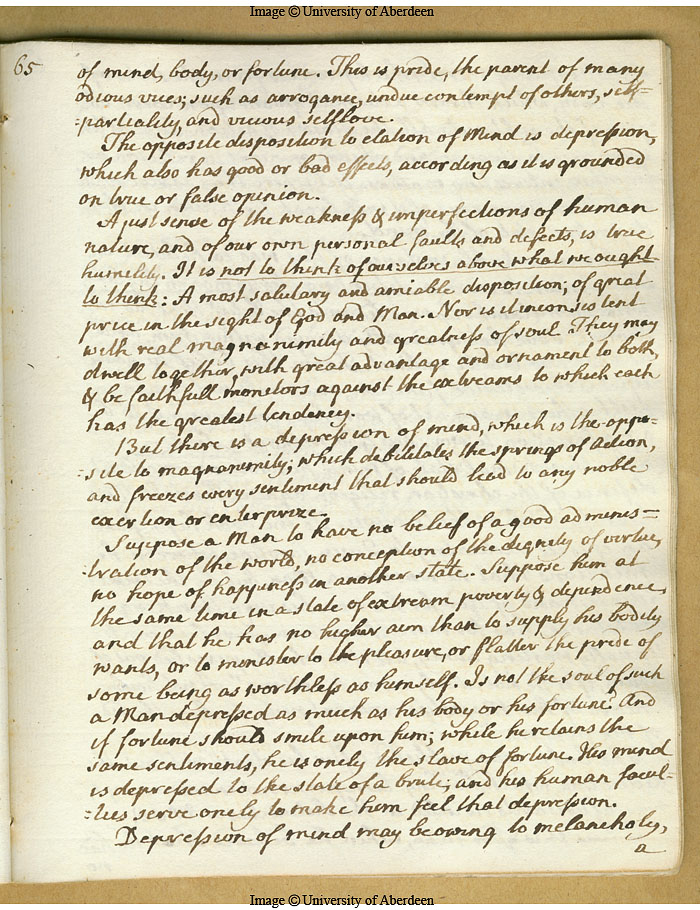 Image © University of Aberdeen
65
of mind, body, or fortune. This is pride, the parent of many
odious vices; such as arrogance, undue contempt of others, self=
=partiality, and vicious selflove.
The opposite disposition to elation of Mind is depression,
which also has good or bad effects, according as it is grounded
on true or false opinion.
A just sense of the weakness & imperfections of human
nature, and of our own personal faults and defects, is true
humility. It is not to think of ourselves above what we ought
to think: A most salutary and amiable disposition; of great
price in the sight of God and Man. Nor is it inconsistent
with real magnanimity and greatness of soul. They may
dwell together, with great advantage and ornament to both,
& be faithfull monitors against the extreams to which each
has the greatest tendency.
But there is a depression of mind, which is the oppo=
=site to magnanimity; which debilitates the springs of Action,
and freezes every sentiment that should lead to any noble
exertion or enterprize.
Suppose a Man to have no belief of a good adminis=
tration of the world, no conception of the dignity of virtue,
no hope of happiness in another state. Suppose him at
the same time in a state of extream poverty & dependence,
and that he has no higher aim than to supply his bodily
wants, or to minister to the pleasure, or flatter the pride of
some being as worthless as himself. Is not the soul of such
a Man depressed as much as his body or his fortune? And
if fortune should smile upon him; while he retains the
same sentiments, he is onely the slave of fortune. His mind
is depressed to the state of a brute; and his human facul=
=ties serve onely to make him feel that depression.
Depression of mind may be owing to melancholy,
a
Image © University of Aberdeen